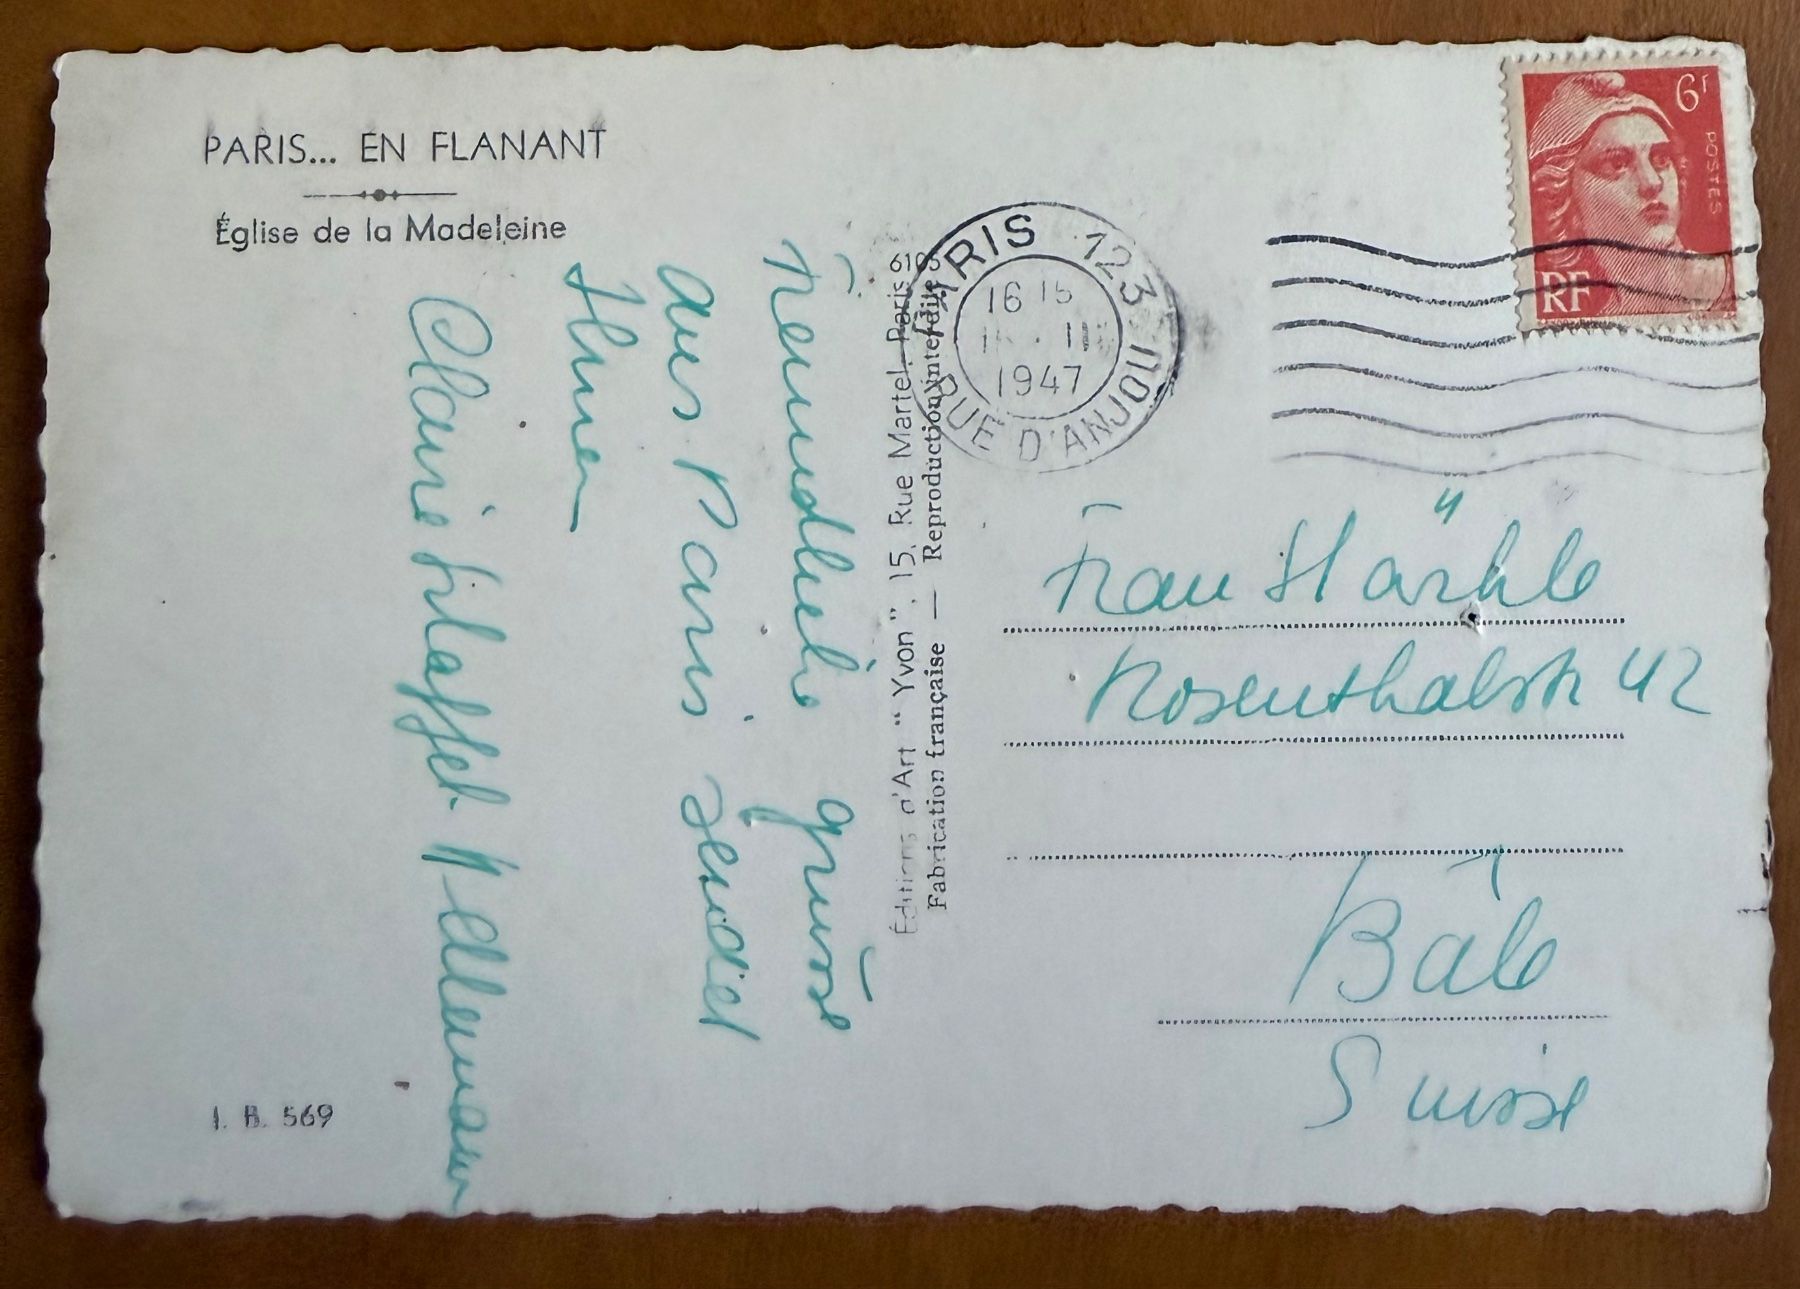 PARIS... EN FLANANT
Église de la Madeleine
Freundliche grüsse
aus Paris sendet
Ihnen
Claire
I. B. 569
6105
Éditions d'Art "Yvon", 15, Rue Martel, Paris
Fabrication française — Reproduction interdite
PARIS 123
16 15
II
1947
RUE D'ANJOU
6f
POSTES
RF
Frau Härkle
Rosenthalstr 42
Bâle
Suisse